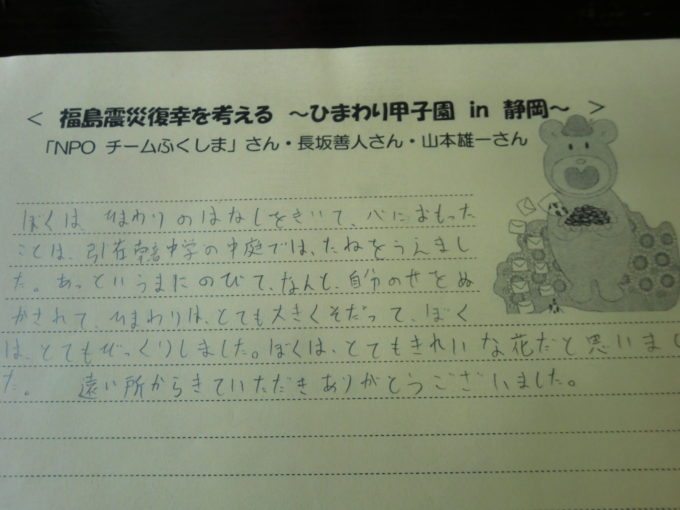 ＜ 福島震災復幸を考える ～ひまわり甲子園 in 静岡～ ＞
「NPO チームふくしま」さん・長坂善人さん・山本雄一さん
ぼくは、ひまわりのはなしをきいて、心におもった
ことは、引佐南部中学の中庭では、たねをうえまし
た。あっというまにのびて、なんと、自分のせをぬ
かされて、ひまわりは、とても大きくそだって、ぼく
は、とてもびっくりしました。ぼくは、とてもきれいな花だと思いまし
た。 遠い所からきていただきありがとうございました。